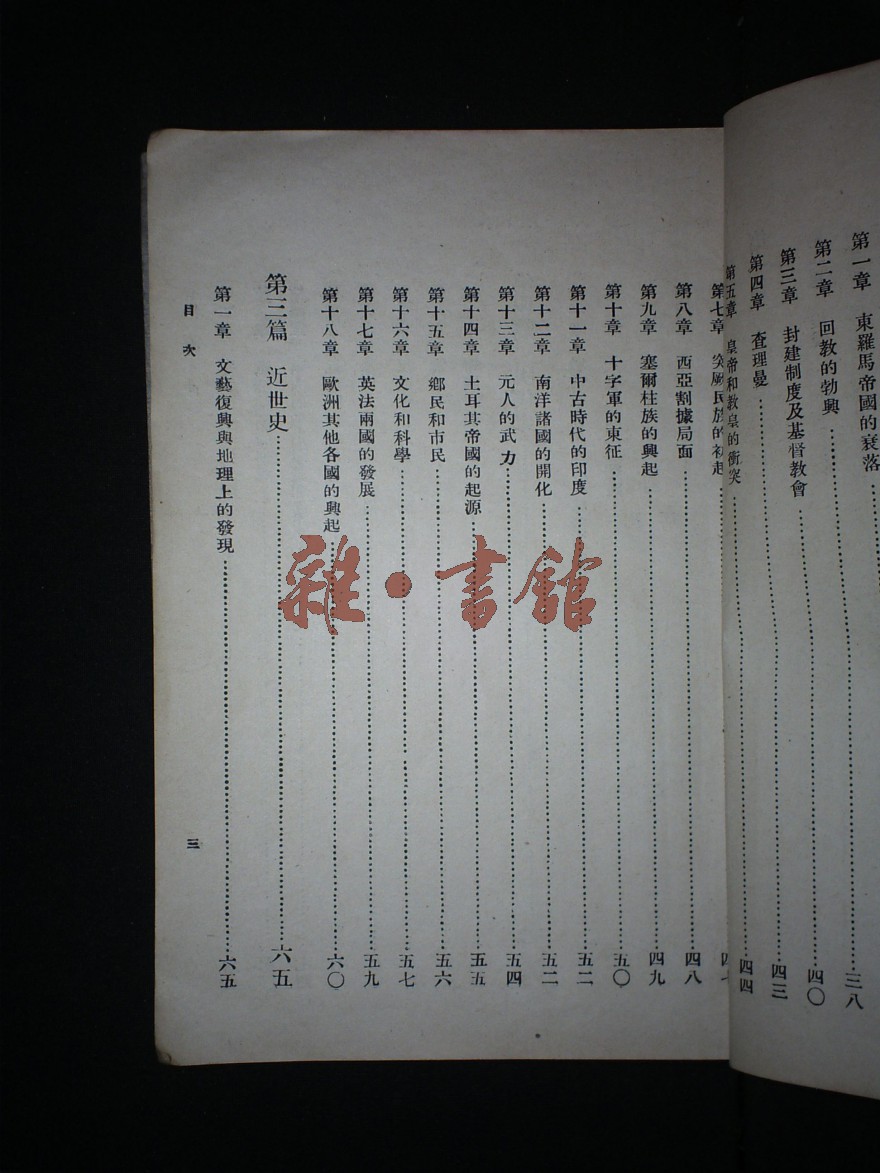 第一章　東羅馬帝國的衰落……三八
第二章　回教的勃興……四〇
第三章　封建制度及基督教會……四三
第四章　查理曼……四四
第五章　皇帝和教皇的衝突
第七章　突厥民族的初起……四七
第八章　西亞割據局面……四八
第九章　塞爾柱族的興起……四九
第十章　十字軍的東征……五〇
第十一章　中古時代的印度……五二
第十二章　南洋諸國的開化……五二
第十三章　元人的武力……五四
第十四章　土耳其帝國的起源……五五
第十五章　鄉民和市民……五六
第十六章　文化和科學……五七
第十七章　英法兩國的發展……五九
第十八章　歐洲其他各國的興起……六〇
第三篇　近世史……六五
第一章　文藝復興與地理上的發現……六五
目次
三
雜·書館